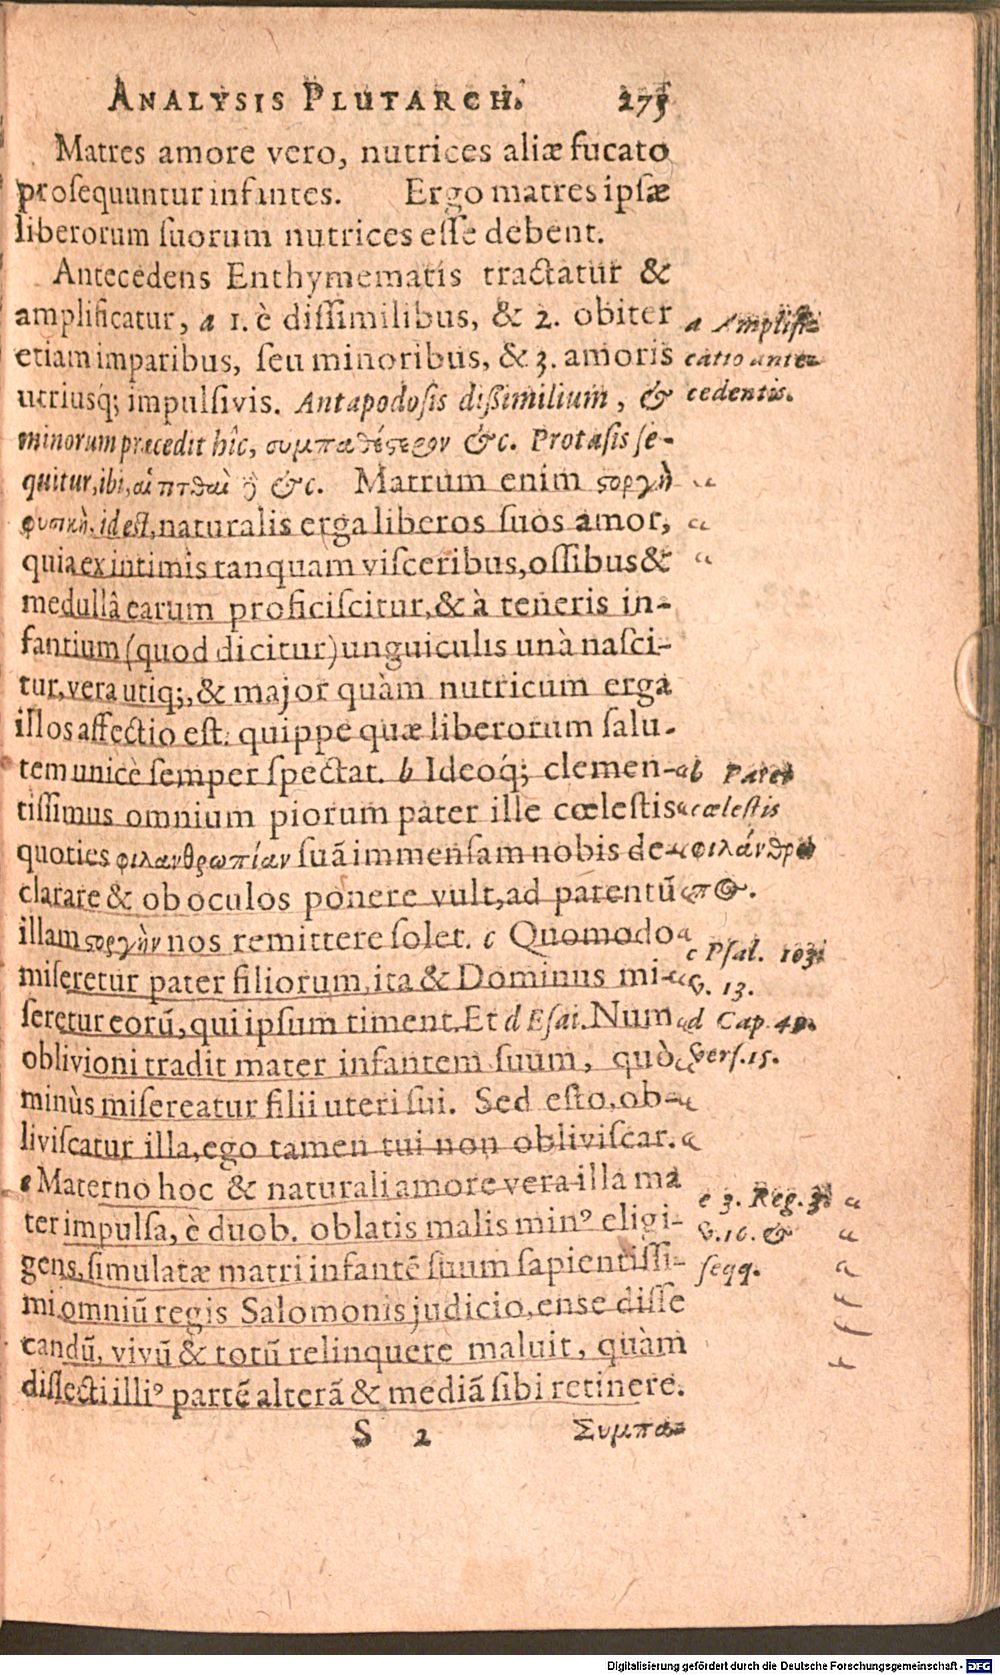 ANALYSIS PLUTARCH. 275
Matres amore vero, nutrices aliæ fucato
prosequuntur infantes. Ergo matres ipsæ
liberorum suorum nutrices esse debent.
Antecedens Enthymematis tractatur &
amplificatur, a 1. è dissimilibus, & 2. obiter
etiam imparibus, seu minoribus, & 3. amoris
utriusq; impulsivis. Antapodosis dissimilium, &
minorum præcedit hîc, συμπαθέςερον &c. Protasis se-
quitur, ibi, αἱ πτθαὶ ἢ &c. Matrum enim ςοργὴ
φυσικὴ, id est, naturalis erga liberos suos amor,
quia ex intimis tanquam visceribus, ossibus &
medullâ earum proficiscitur, & à teneris in-
fantium (quod dicitur) unguiculis unà nasci-
tur, vera utiq;, & major quàm nutricum erga
illos affectio est: quippe quæ liberorum salu-
tem unicè semper spectat. b Ideoq́; clemen-
tissimus omnium piorum pater ille cœlestis
quoties φιλανθρωπίαν suã immensam nobis de-
clarare & ob oculos ponere vult, ad parentũ
illam ςοργὴν nos remittere solet. c Quomodo
miseretur pater filiorum, ita & Dominus mi-
seretur eorũ, qui ipsum timent. Et d Esai. Num
oblivioni tradit mater infantem suum, quò
minùs misereatur filii uteri sui. Sed esto, ob-
liviscatur illa, ego tamen tui non obliviscar.
e Materno hoc & naturali amore vera illa ma
ter impulsa, è duob. oblatis malis minꝰ eligi-
gens, simulatæ matri infantẽ suum sapientissi-
mi omniũ regis Salomonis judicio, ense disse
candũ, vivũ & totũ relinquere maluit, quàm
dissecti illiꝰ partẽ alterã & mediã sibi retinere.
S 2 Συμπα-
a Amplifi-
catio ante-
cedentis.
b Pater
cœlestis
φιλάνθρω-
π@.
c Psal. 103.
v. 13.
d Cap. 49.
vers. 15.
e 3. Reg. 3.
v. 16. &
seqq.
Digitalisierung gefördert durch die Deutsche Forschungsgemeinschaft - DFG